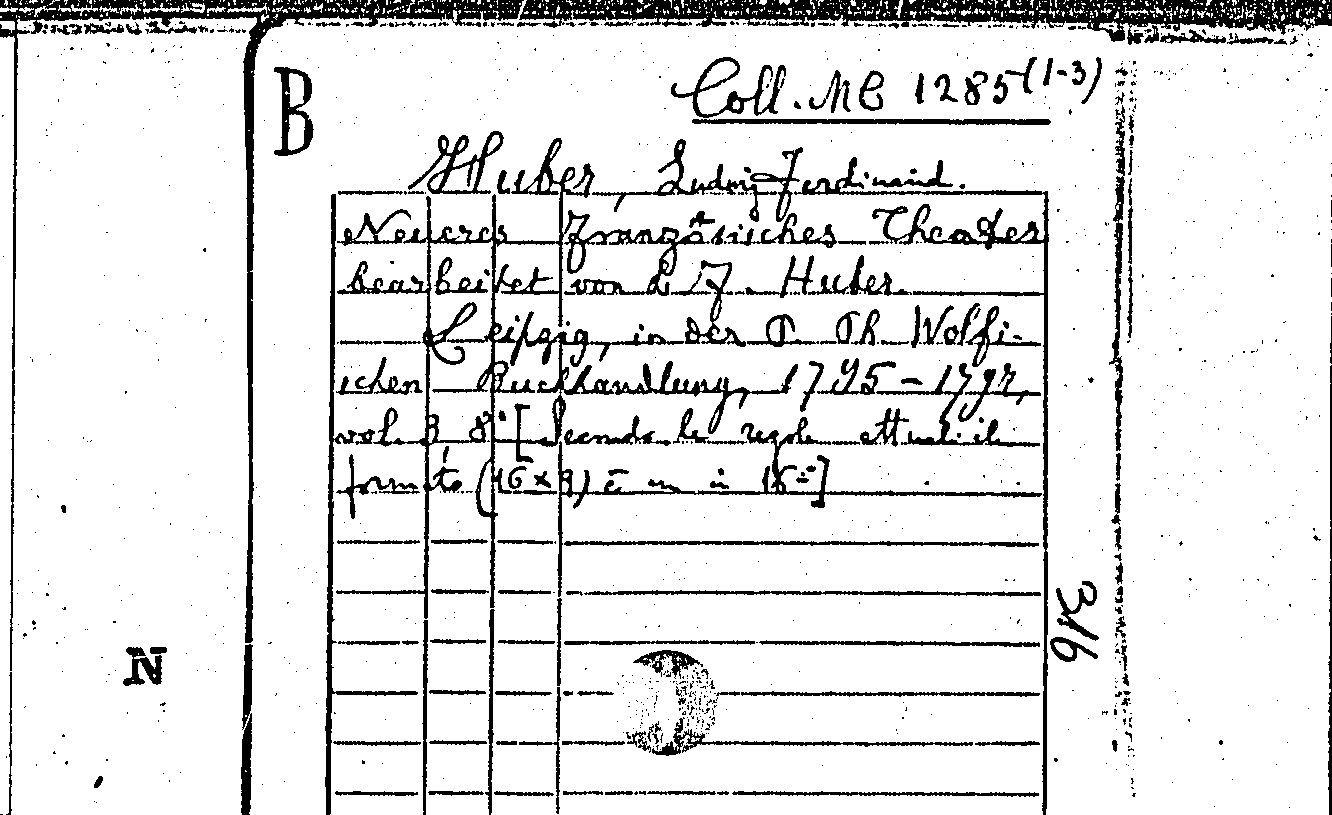 B
Coll. MB 1285 (1-3)
Huber, Ludwig Ferdinand.
Neueres Französisches Theater
bearbeitet von L. F. Huber.
Leipzig, in der P. Ph. Wolfi-
schen Buchhandlung, 1795-1797,
vol. 3, 8° [Secondo le regole attuali il
formato (16x9) è un in 16°]
346
N